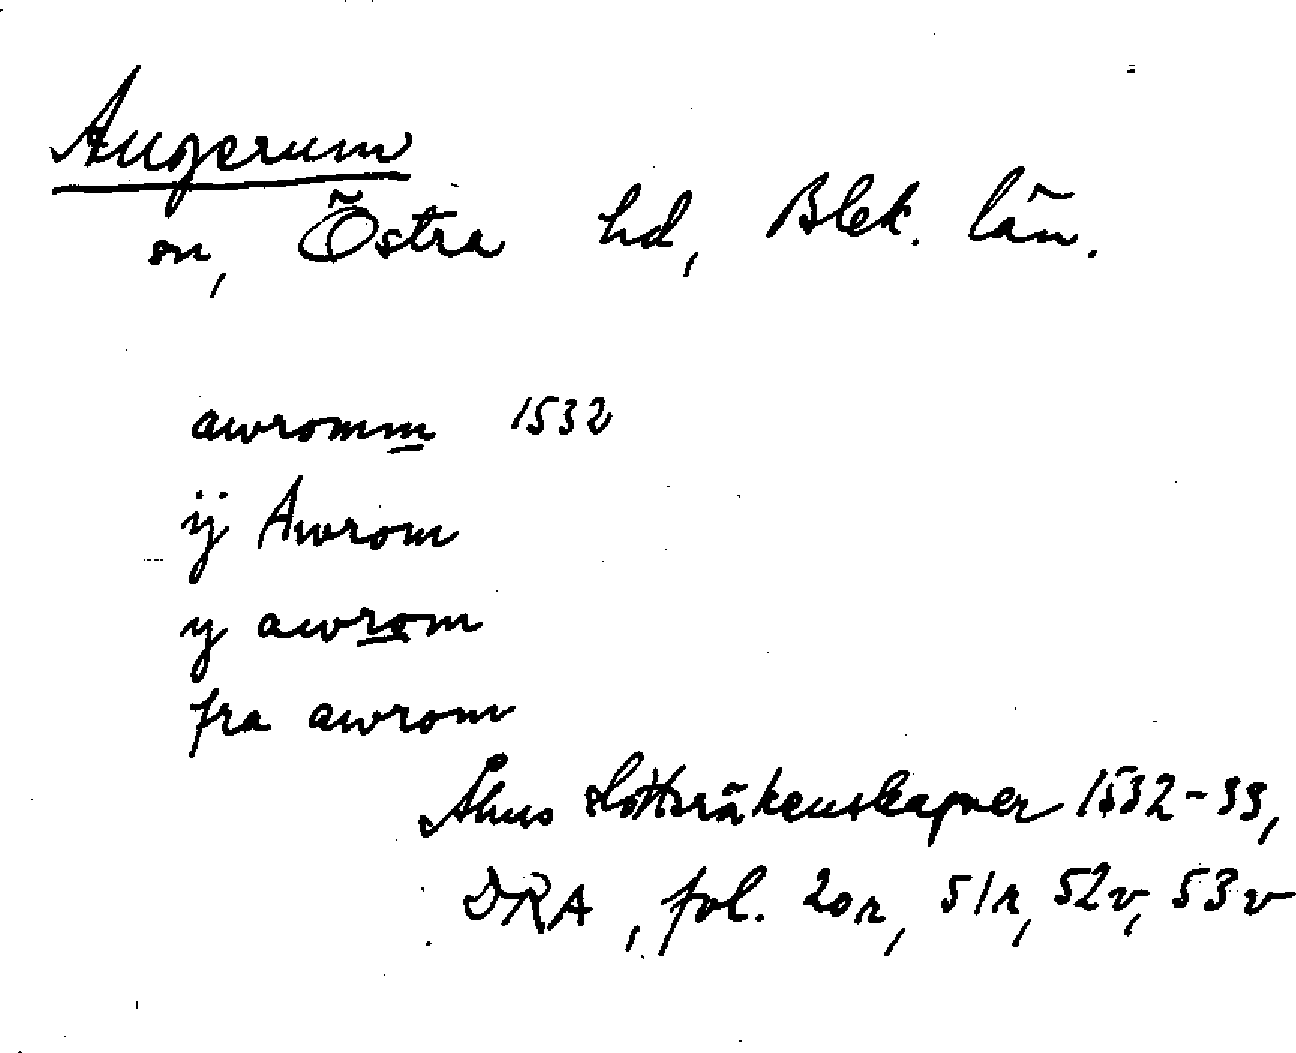 Augerum
sn, Östra hd, Blek. län.
awromm 1532
ÿ Awrom
y awrom
fra awrom
Åhus slottsräkenskaper 1532-33,
DRA, fol. 20r, 51r, 52v, 53v